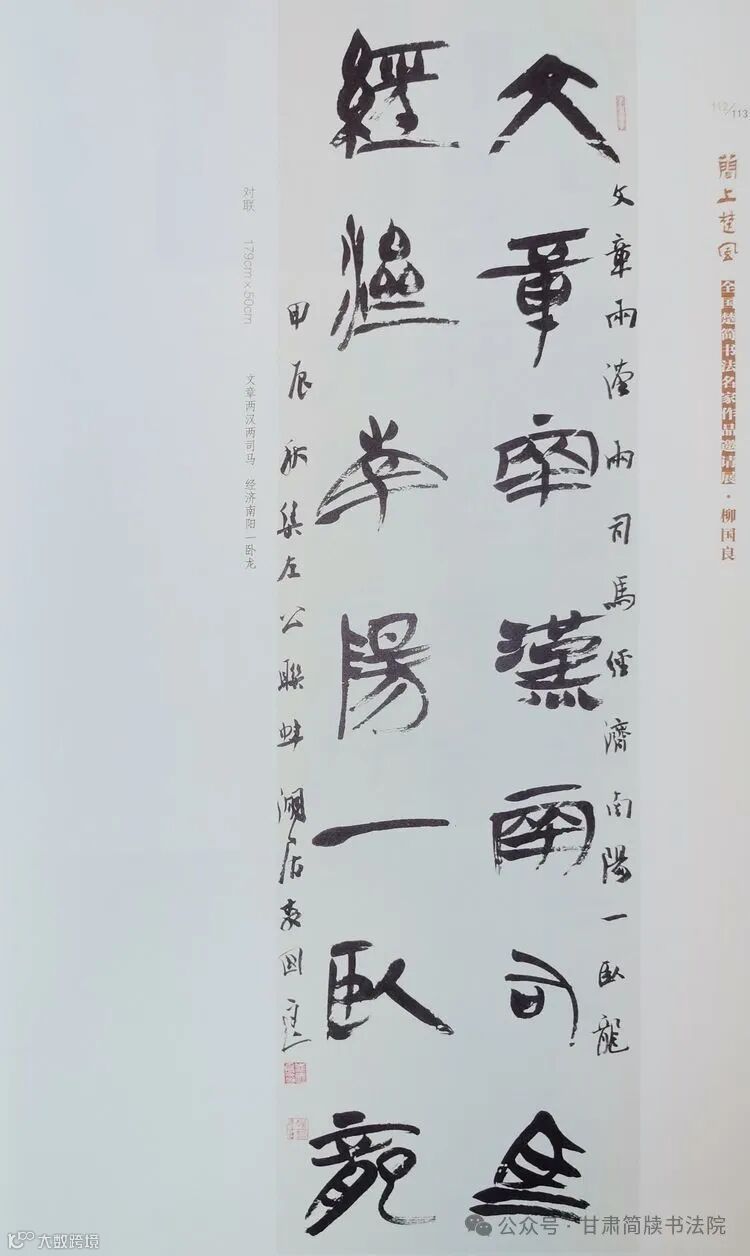 文章兩漢兩司馬
經濟南陽一臥龍
文章兩漢兩司馬經濟南陽一臥龍
甲辰秋集左公聯
湖居
國良
对联 179cm×50cm 文章两汉两司马 经济南阳一卧龙
112/113
簡上楚風
全国楚简书法名家作品邀请展·柳国良
公众号·甘肃简牍书法院
大数跨境